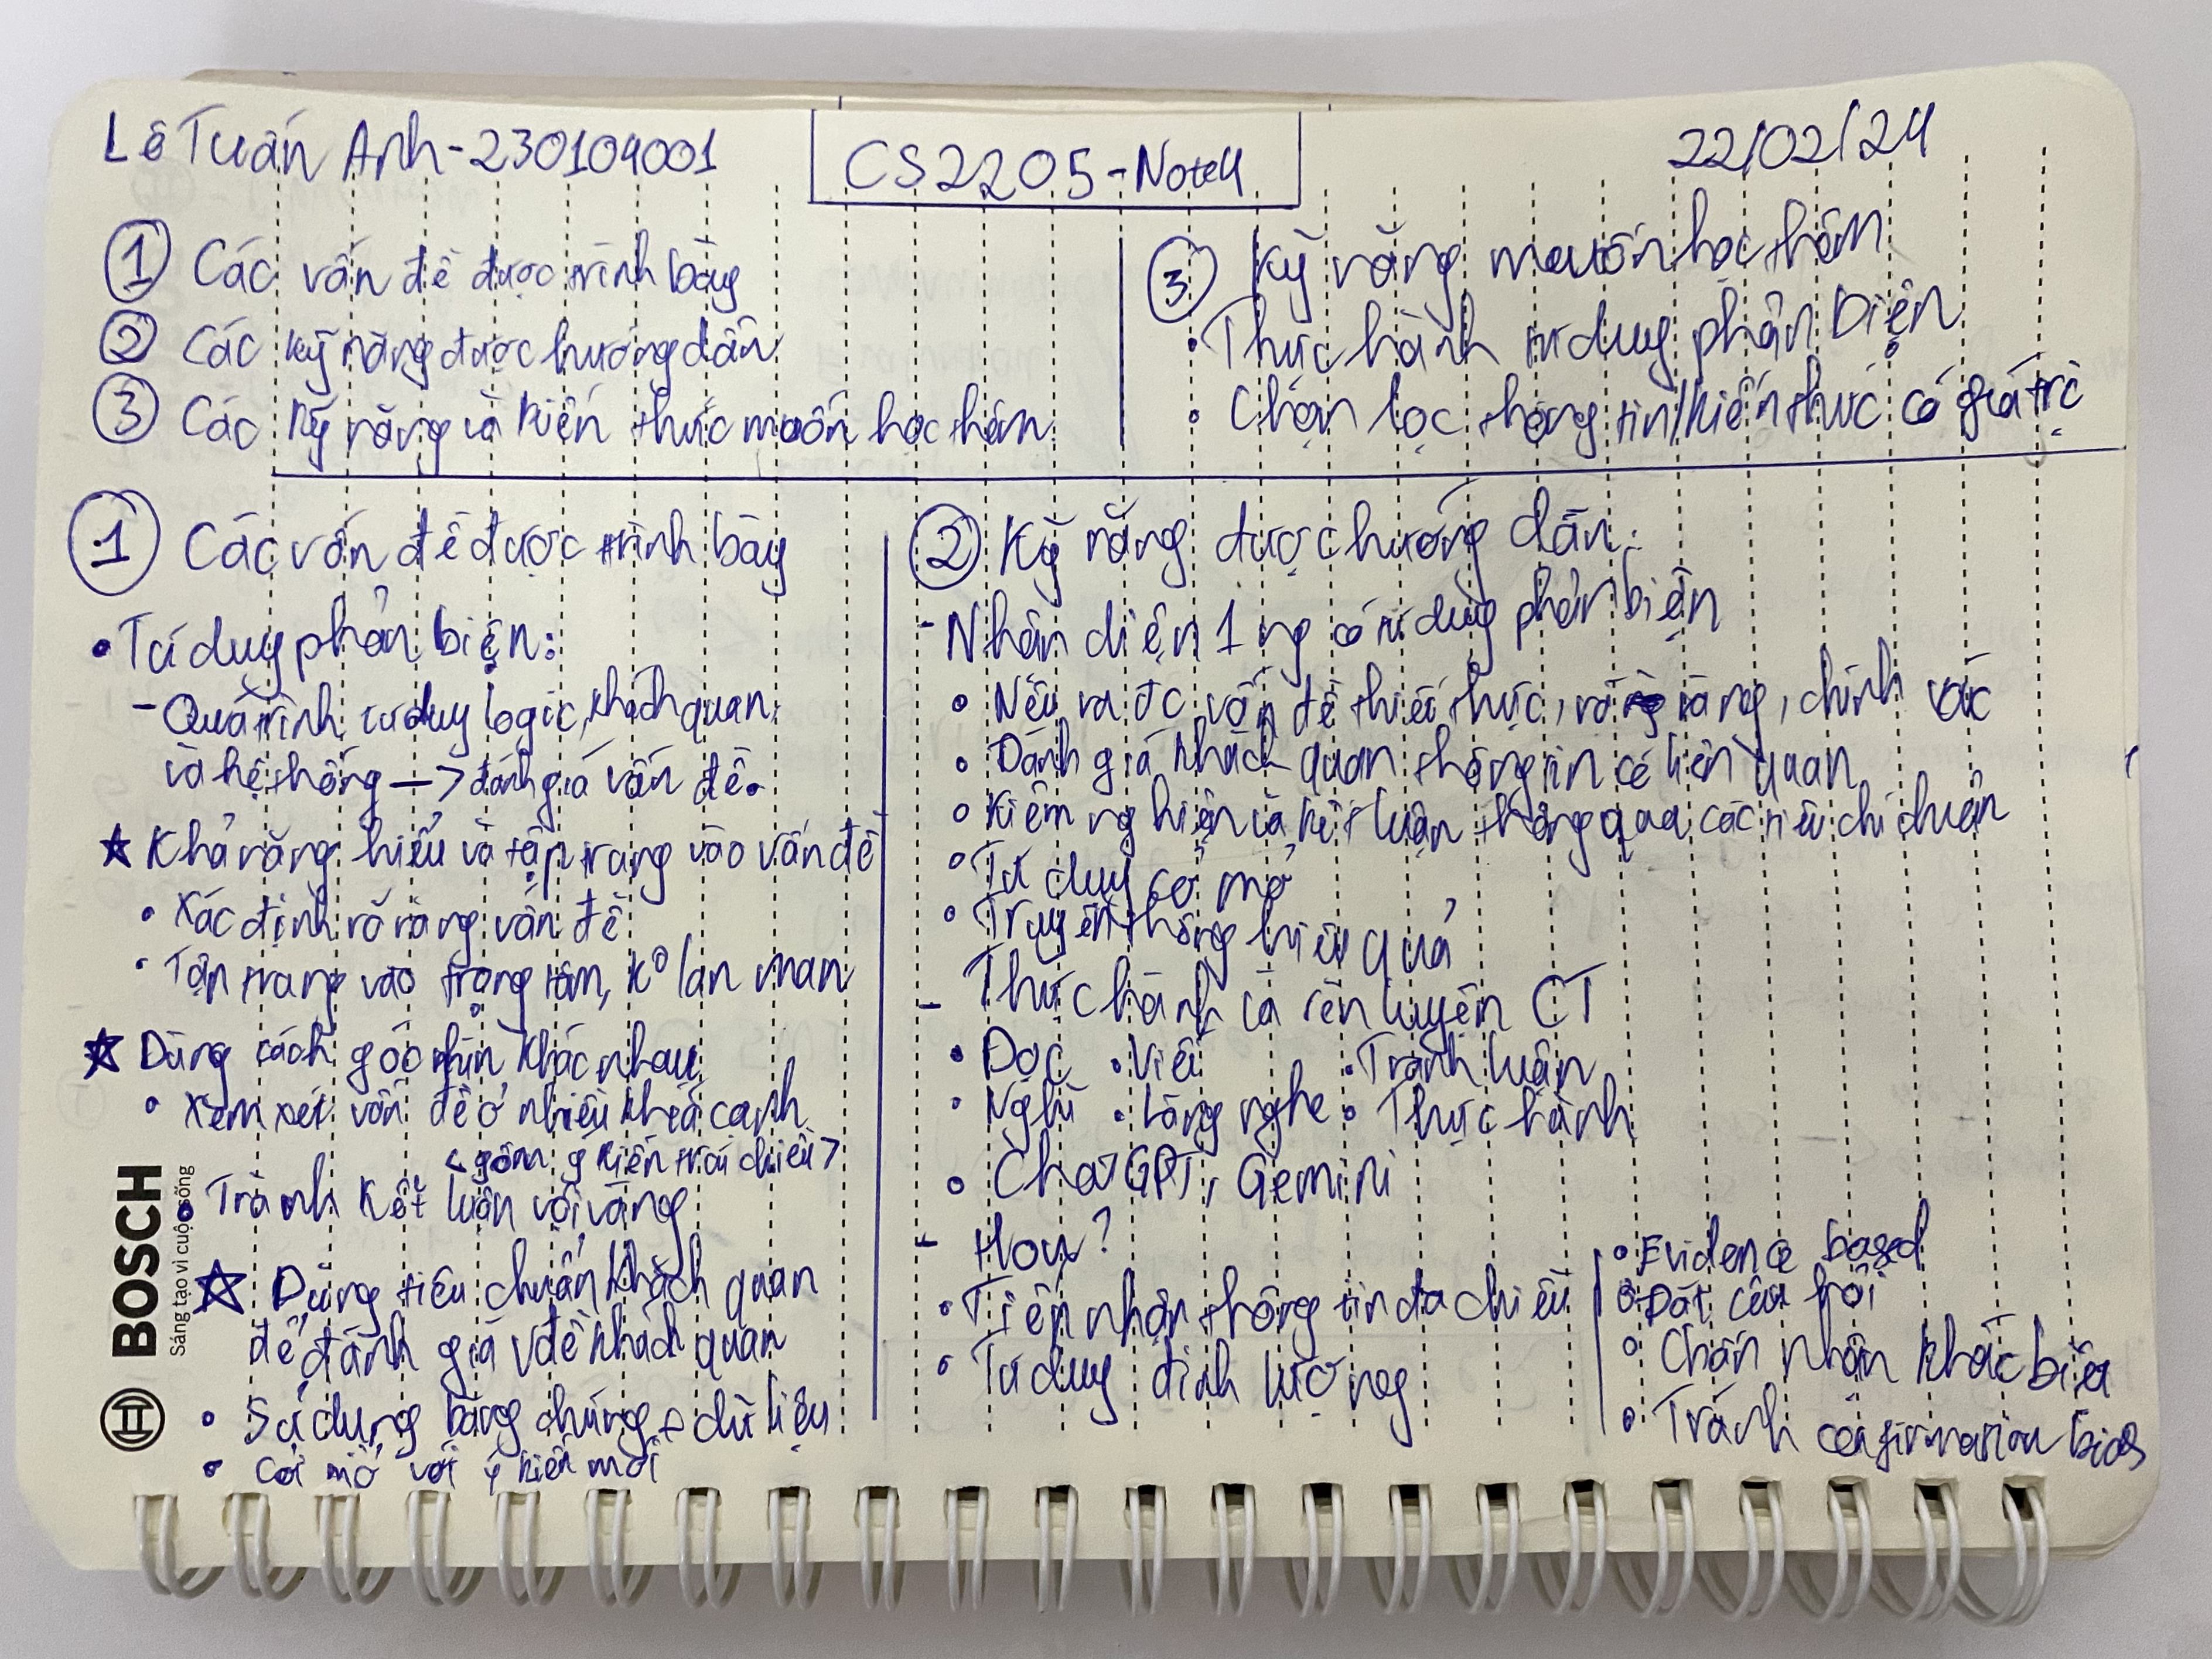 Lê Tuấn Anh - 230104001
CS2205 - Note4
22/02/24
① Các vấn đề được trình bày
② Các kỹ năng được hướng dẫn
③ Các kỹ năng và kiến thức muốn học thêm
③ Kỹ năng muốn học thêm
• Thực hành tư duy phản biện
• Chọn lọc thông tin/kiến thức có giá trị
① Các vấn đề được trình bày
• Tư duy phản biện:
- Quá trình tư duy logic, khách quan
và hệ thống —> đánh giá vấn đề.
☆ Khả năng hiểu và tập trung vào vấn đề
• Xác định rõ ràng vấn đề
• Tập trung vào trọng tâm, k° lan man
☆ Dùng cách góc nhìn khác nhau
• Xem xét vấn đề ở nhiều khía cạnh
<gồm ý kiến trái chiều>
• Tránh kết luận vội vàng
☆ Dùng tiêu chuẩn khách quan
để đánh giá vđề khách quan
• Sử dụng bằng chứng, dữ liệu
• Cởi mở với ý kiến mới
② Kỹ năng được hướng dẫn:
- Nhận diện 1 ng có tư duy phản biện
• Nêu ra đc vấn đề thiết thực, rõ ràng, chính xác
• Đánh giá khách quan thông tin có liên quan
• Kiểm nghiệm và kết luận thông qua các tiêu chí chuẩn
• Tư duy cởi mở
• Truyền thông hiệu quả
- Thực hành và rèn luyện CT
• Đọc • Viết • Tranh luận
• Nghĩ • Lắng nghe • Thực hành
• ChatGPT, Gemini
- How?
• Tiếp nhận thông tin đa chiều
• Tư duy định lượng
• Evidence based
• Đặt câu hỏi
• Chấp nhận khác biệt
• Tránh confirmation bias
BOSCH
Sáng tạo vì cuộc sống